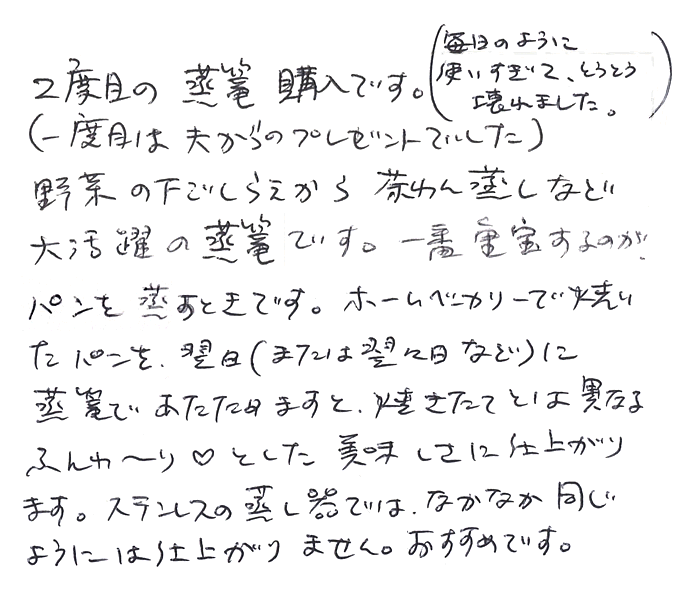 2度目の 蒸篭 購入です。(毎日のように
使いすぎて、とうとう
壊れました。)
(一度目は 夫からのプレゼントでした)
野菜の下ごしらえから 茶わん蒸しなど
大活躍の蒸篭です。一番重宝するのが、
パンを蒸すときです。ホームベーカリーで焼い
たパンを、翌日(または翌々日など)に
蒸篭であたためますと、焼きたてとは異なる
ふんわ〜り♡とした 美味しさに仕上がり
ます。ステンレスの蒸し器では、なかなか同じ
ようには仕上がりません。おすすめです。